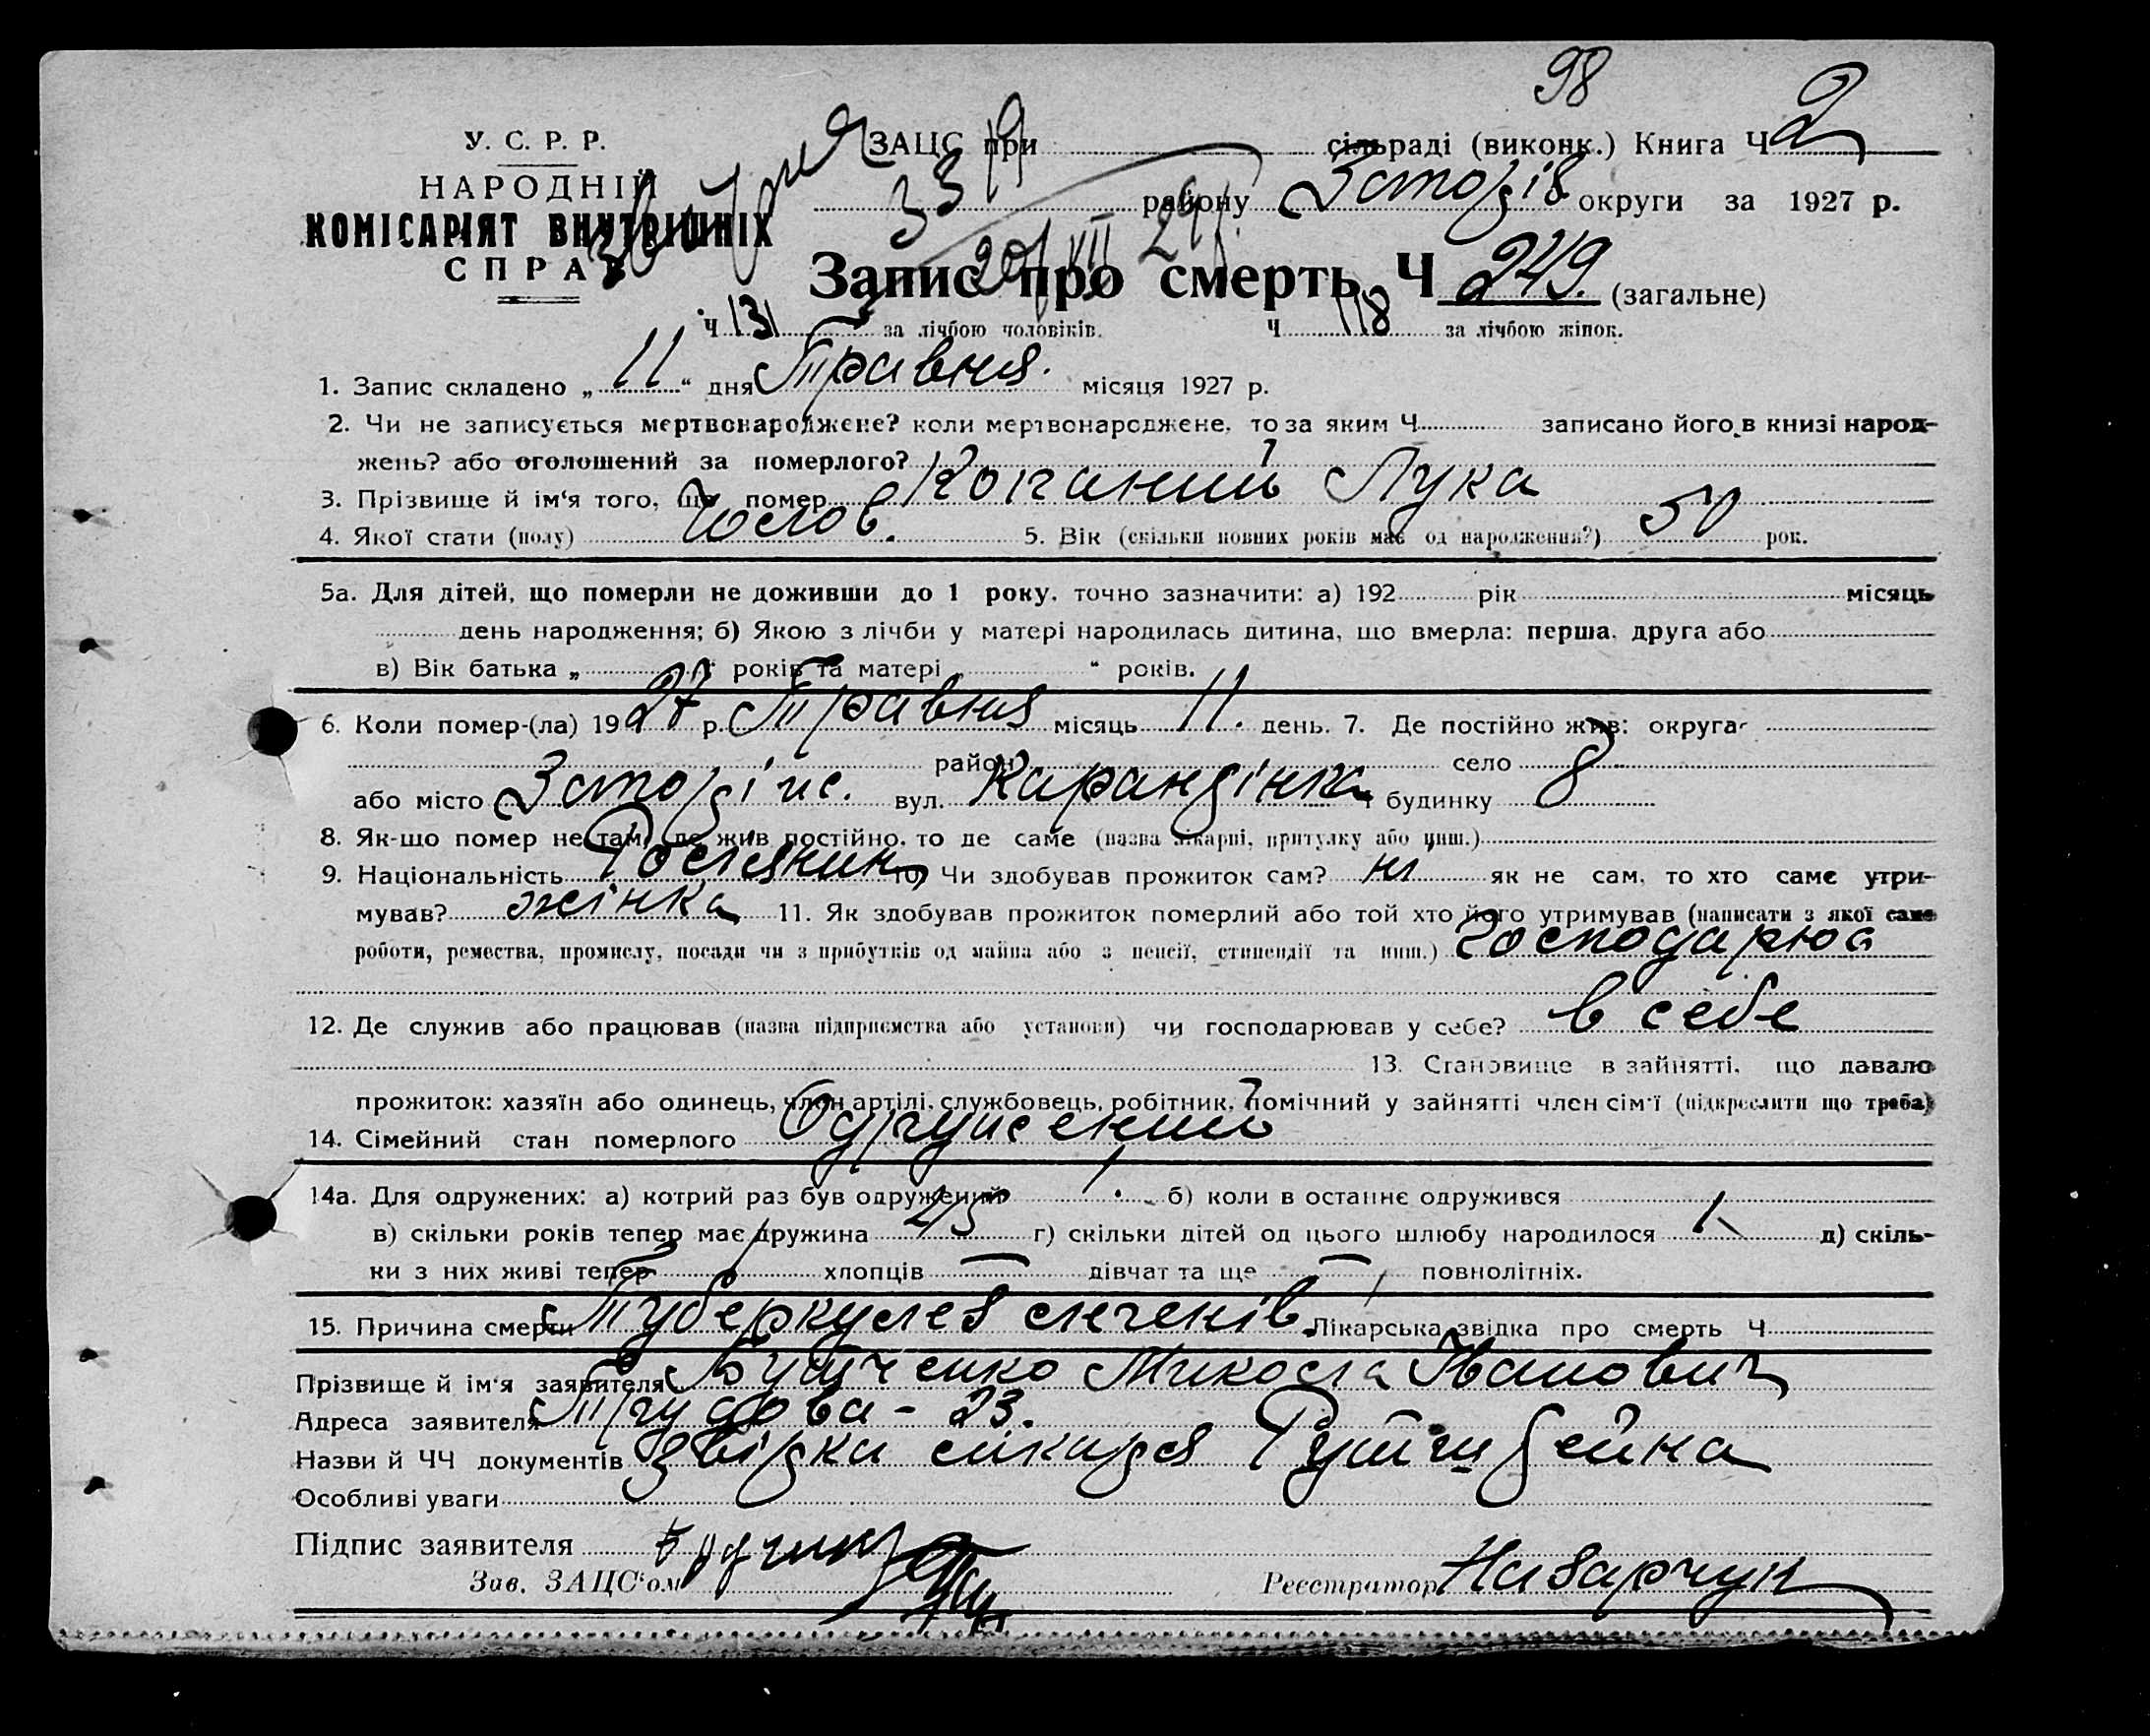 98
У. С. Р. Р. ЗАЦС при сільраді (виконк.) Книга Ч 2
НАРОДНІЙ
КОМІСАРІЯТ ВНУТРІШНІХ
СПРАВ
району Запоріз округи за 1927 р.
Запис про смерть Ч 249. (загальне)
Ч 131 за лічбою чоловіків. Ч 118 за лічбою жінок.
1. Запис складено „ 11 “ дня Травня. місяця 1927 р.
2. Чи не записується мертвонароджене? коли мертвонароджене, то за яким Ч записано його в книзі народ-
жень? або оголошений за померлого?
3. Прізвище й ім‘я того, що помер Коганий Лука
4. Якої стати (полу) Чолов. 5. Вік (скільки повних років має од народження?) 50 рок.
5а. Для дітей, що померли не доживши до 1 року, точно зазначити: а) 192 рік місяць
день народження; б) Якою з лічби у матері народилась дитина, що вмерла: перша, друга або
в) Вік батька „ “ років та матері „ “ років.
6. Коли помер-(ла) 1927 р. Травня місяць 11. день. 7. Де постійно жив: округа
район село
або місто Запоріж. вул. Карандінка будинку 8
8. Як-що помер не там, де жив постійно, то де саме (назва лікарні, притулку або инш.)
9. Національність Росіянин 10. Чи здобував прожиток сам? ні як не сам, то хто саме утри-
мував? жінка 11. Як здобував прожиток померлий або той хто його утримував (написати з якої саме
роботи, ремества, промислу, посади чи з прибутків од майна або з пенсії, стипендії та инш.) Господарює
12. Де служив або працював (назва підприємства або установи) чи господарював у себе? в себе
13. Становище в зайнятті, що давало
прожиток: хазяїн або одинець, член артілі, службовець, робітник, помічний у зайнятті член сім‘ї (підкреслити що треба)
14. Сімейний стан померлого Одружений
14а. Для одружених: а) котрий раз був одружений 1. б) коли в останнє одружився
в) скільки років тепер має дружина 45 г) скільки дітей од цього шлюбу народилося 1 д) скіль-
ки з них живі тепер 1 хлопців — дівчат та ще — повнолітніх.
15. Причина смерти Туберкулез легенів Лікарська звідка про смерть Ч
Прізвище й ім‘я заявителя Бутченко Микола Іванович
Адреса заявителя Трудова - 23.
Назви й ЧЧ документів звідка лікаря Гутшдейна
Особливі уваги
Підпис заявителя
Зав. ЗАЦС‘ом Реєстратор Назарчук